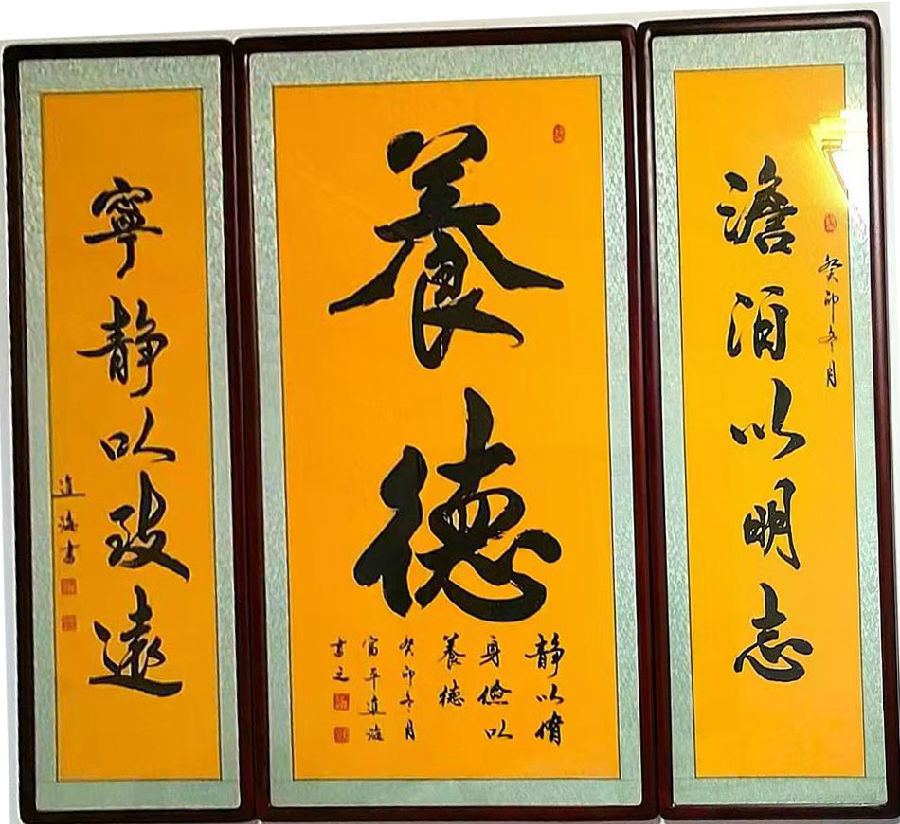 養德
静以脩
身儉以
養德
癸卯冬月
富平道海
書之
澹泊以明志
癸卯冬月
寧静以致遠
道海書